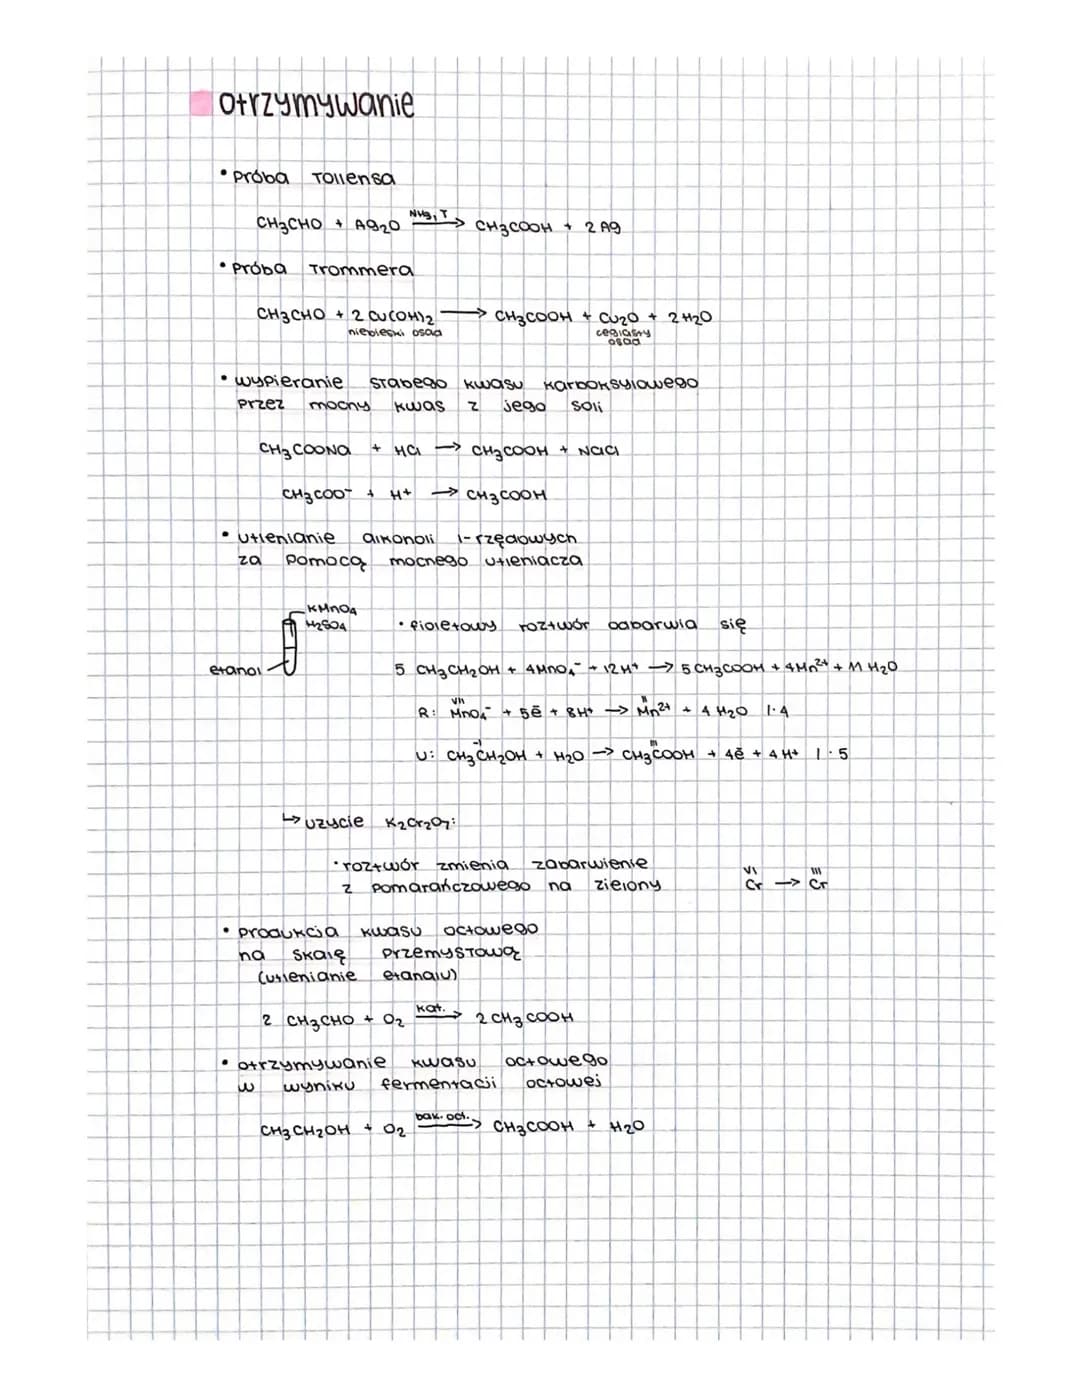 otrzymywanie
• próba Tollensa
CH₃CHO + Ag₂O NH₃, T → CH₃COOH + 2 Ag
• próba Trommera
CH₃CHO + 2 Cu(OH)₂ → CH₃COOH + Cu₂O + 2 H₂O
niebieski osad
ceglasty
osad
• wypieranie słabego kwasu karboksylowego
przez mocny kwas z jego soli
CH₃COONa + HCl → CH₃COOH + NaCl
CH₃COO⁻ + H⁺ → CH₃COOH
• utlenianie alkanoli 1-rzędowych
za pomocą mocnego utleniacza
KMnO₄
H₂SO₄
• fioletowy roztwór odbarwia się
etanol
5 CH₃CH₂OH + 4MnO₄⁻ + 12H⁺ → 5 CH₃COOH + 4Mn²⁺ + 11 H₂O
VII II
R: MnO₄⁻ + 5ē + 8H⁺ → Mn²⁺ + 4 H₂O |·4
-I III
U: CH₃CH₂OH + H₂O → CH₃COOH + 4ē + 4H⁺ |·5
↳ użycie K₂Cr₂O₇:
• roztwór zmienia zabarwienie
z pomarańczowego na zielony
VI III
Cr → Cr
• produkcja kwasu octowego
na skalę przemysłową
(utlenianie etanalu)
2 CH₃CHO + O₂ kat. → 2 CH₃COOH
• otrzymywanie kwasu octowego
w wyniku fermentacji octowej
CH₃CH₂OH + O₂ bak. oct. → CH₃COOH + H₂O